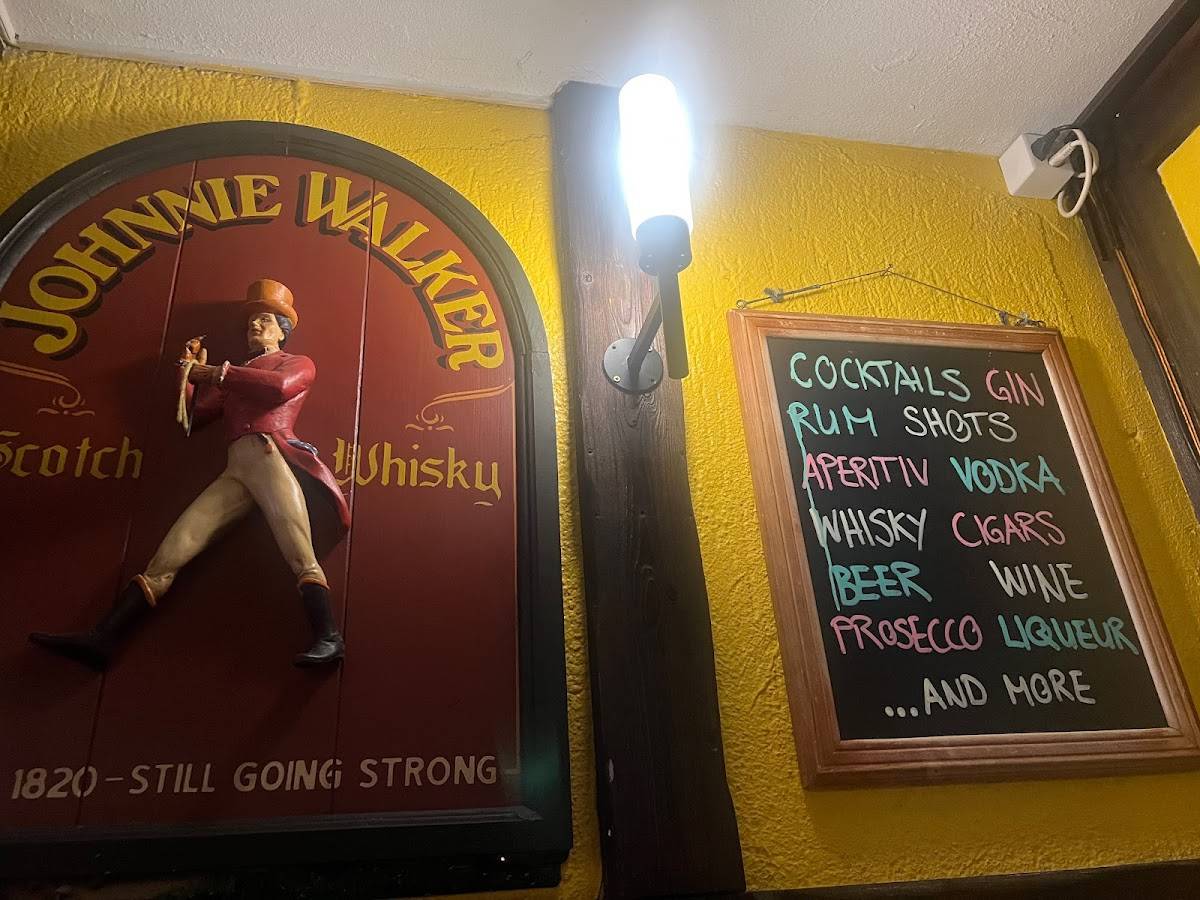 JOHNNIE WALKER
Scotch Whisky
1820 – STILL GOING STRONG
COCKTAILS GIN
RUM SHOTS
APERITIV VODKA
WHISKY CIGARS
BEER WINE
PROSECCO LIQUEUR
...AND MORE